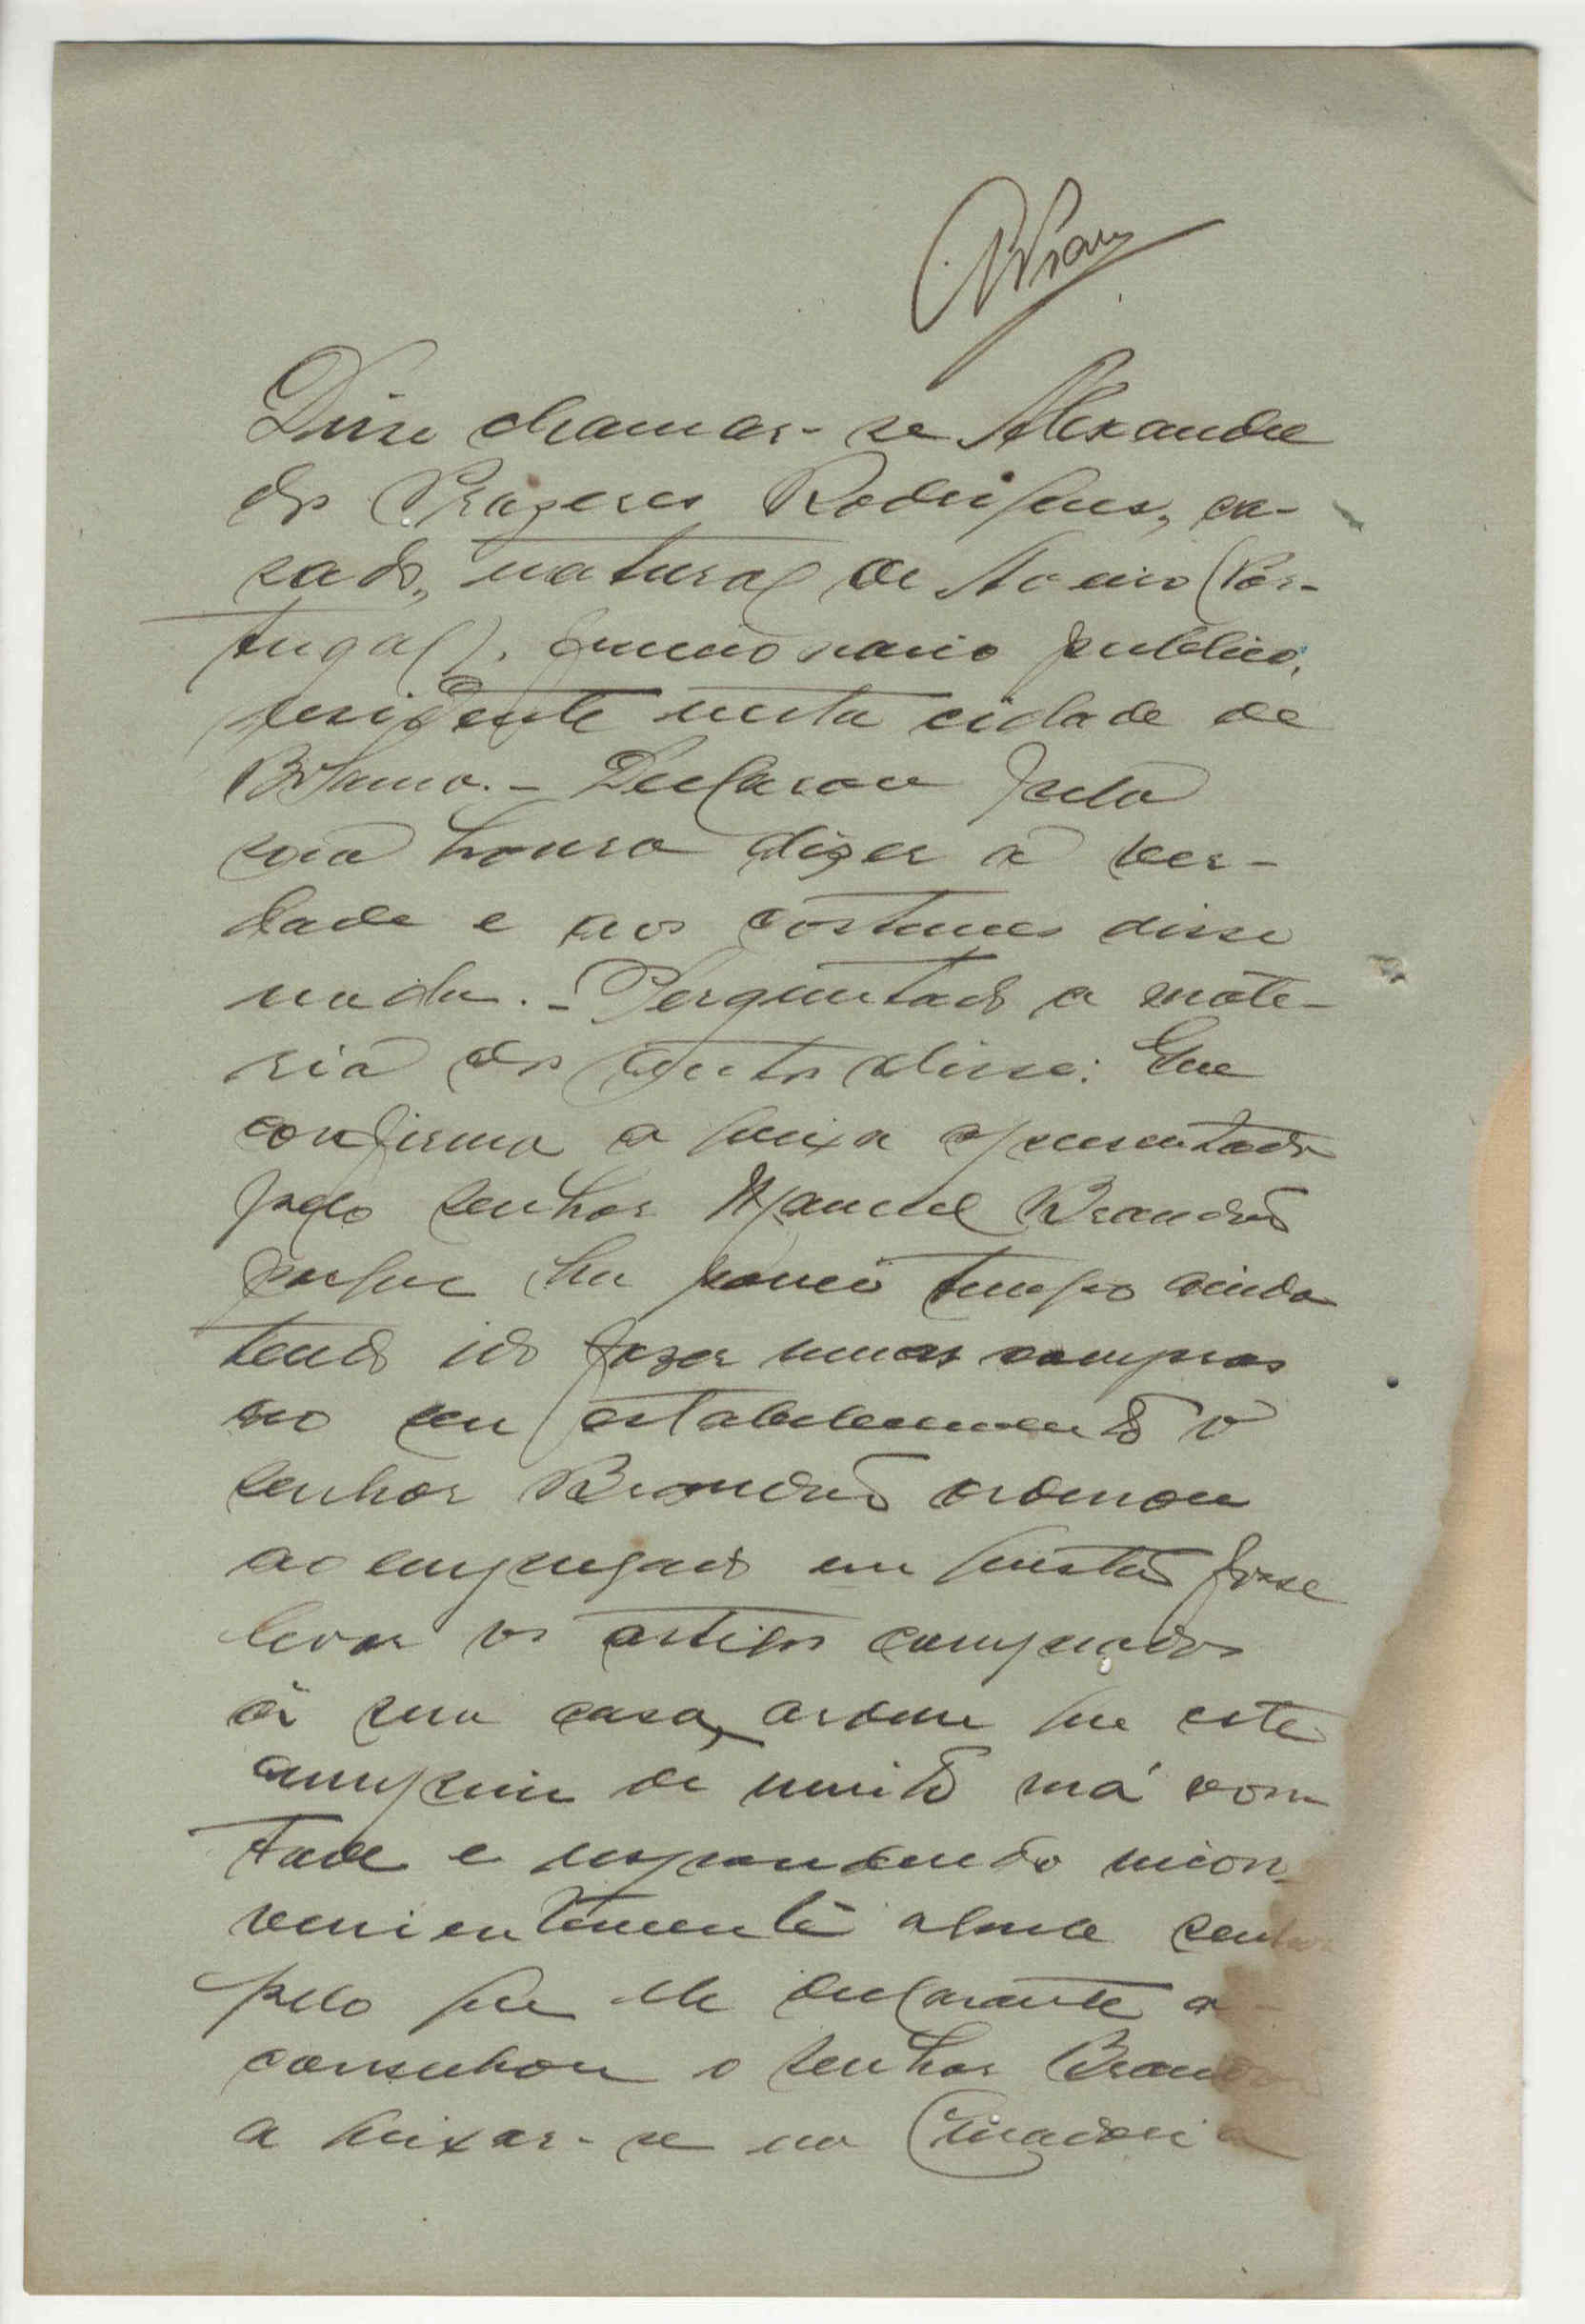 Disse chamar-se Alexandre
dos Prazeres Rodrigues, ca-
sado, natural de Aveiro (Por-
tugal), funcionario publico,
residente nesta cidade de
Bolama. - Declarou pela
sua honra dizer a ver-
dade e aos costumes disse
nada. - Perguntado a mate-
ria dos autos disse: Que
confirma a queixa apresentada
pelo senhor Manuel Brandão
porque ha pouco tempo ainda
tendo ido fazer umas compras
no seu estabelecimento o
senhor Brandão ordenou
ao empregado em questão fosse
levar os artigos comprados
á sua casa, ordem que este
cumpriu de muito má von
tade e respondendo incon-
venientemente aquele senhor
pelo que ele declarante a-
conselhou o senhor Brandão
a queixar-se na Curadoria